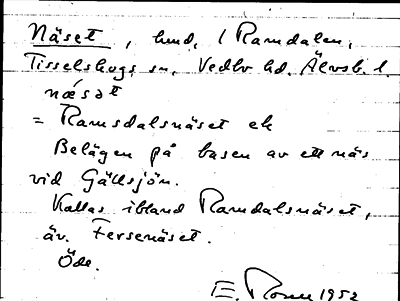 Näset, hmd, / Ramdalen,
Tisselskogs sn, Vedbo hd. Älvsb. l.
näsət
= Ramsdalsnäset ek
Belägen på basen av ett näs
vid Gällsjön.
Kallas ibland Ramdalsnäset,
äv. Fersenäset.
Öde.
E. 1952